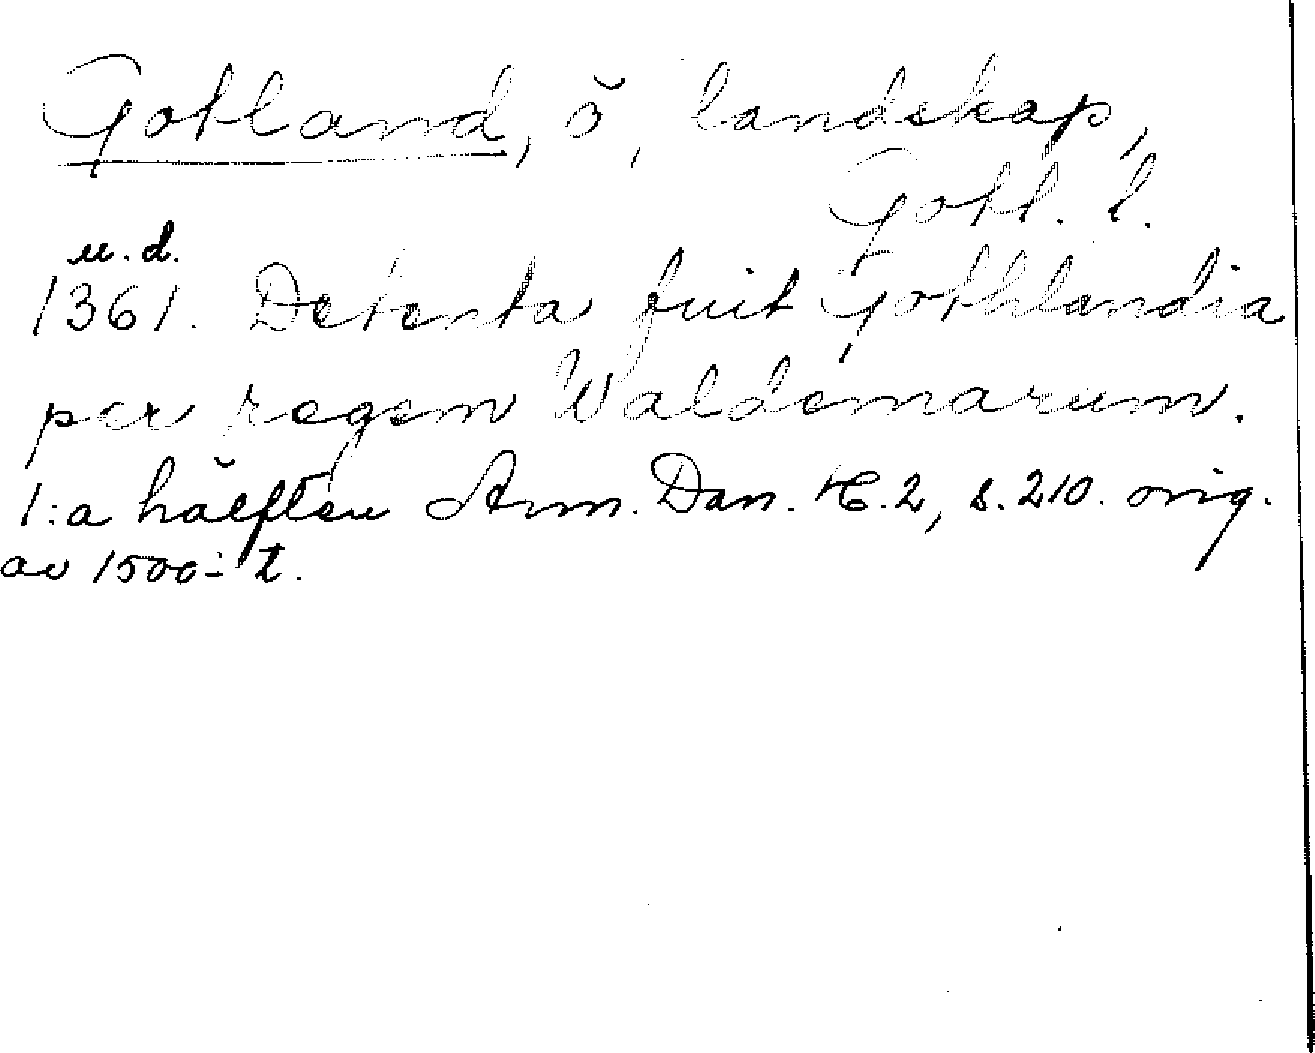 Gotland, ö, landskap,
Gotl. l.
u.d.
1361. Detenta fuit Gothlandia
per regem Waldemarum.
1:a hälften Ann. Dan. 2, s. 210. orig.
av 1500-t.